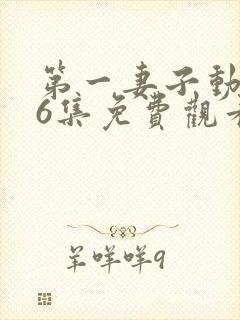 第一妻子動
6集免費觀看
羊咩咩9